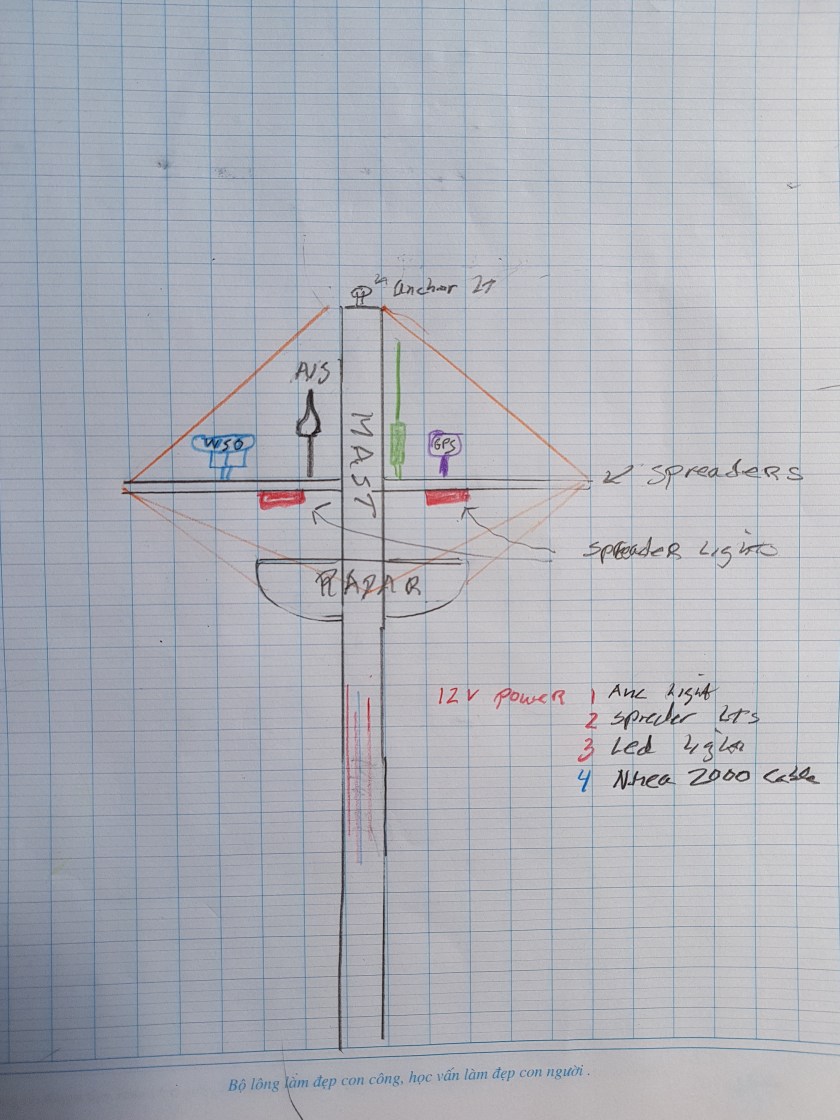 Anchor LT
AIS
WSO
GPS
MAST
SPREADERS
Spreader Light
RADAR
12V Power 1 Anc Light
2 Spreder LTs
3 Led Light
4 Nmea 2000 Cable
Bộ lông làm đẹp con công, học vấn làm đẹp con người .